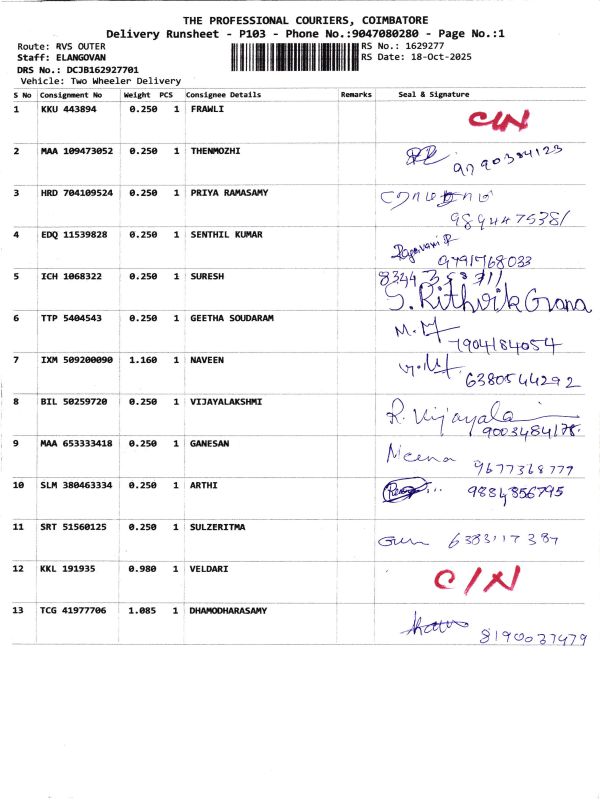 THE PROFESSIONAL COURIERS, COIMBATORE
Delivery Runsheet - P103 - Phone No.:9047080280 - Page No.:1
Route: RVS OUTER RS No.: 1629277
Staff: ELANGOVAN RS Date: 18-Oct-2025
DRS No.: DCJB162927701
Vehicle: Two Wheeler Delivery
S No Consignment No Weight PCS Consignee Details Remarks Seal & Signature
1 KKU 443894 0.250 1 FRAWLI
C/N
2 MAA 109473052 0.250 1 THENMOZHI
9790384123
3 HRD 704109524 0.250 1 PRIYA RAMASAMY
9894475381
4 EDQ 11539828 0.250 1 SENTHIL KUMAR
9791768033
5 ICH 1068322 0.250 1 SURESH
S. Rithvik Grana
6 TTP 5404543 0.250 1 GEETHA SOUDARAM
7904184054
7 IXM 509200090 1.160 1 NAVEEN
6380544292
8 BIL 50259720 0.250 1 VIJAYALAKSHMI
R. Vijayala
9003484178.
9 MAA 653333418 0.250 1 GANESAN
Meena
9677368777
10 SLM 380463334 0.250 1 ARTHI
9884856795
11 SRT 51560125 0.250 1 SULZERITMA
6383117387
12 KKL 191935 0.980 1 VELDARI
C/N
13 TCG 41977706 1.085 1 DHAMODHARASAMY
8190037479